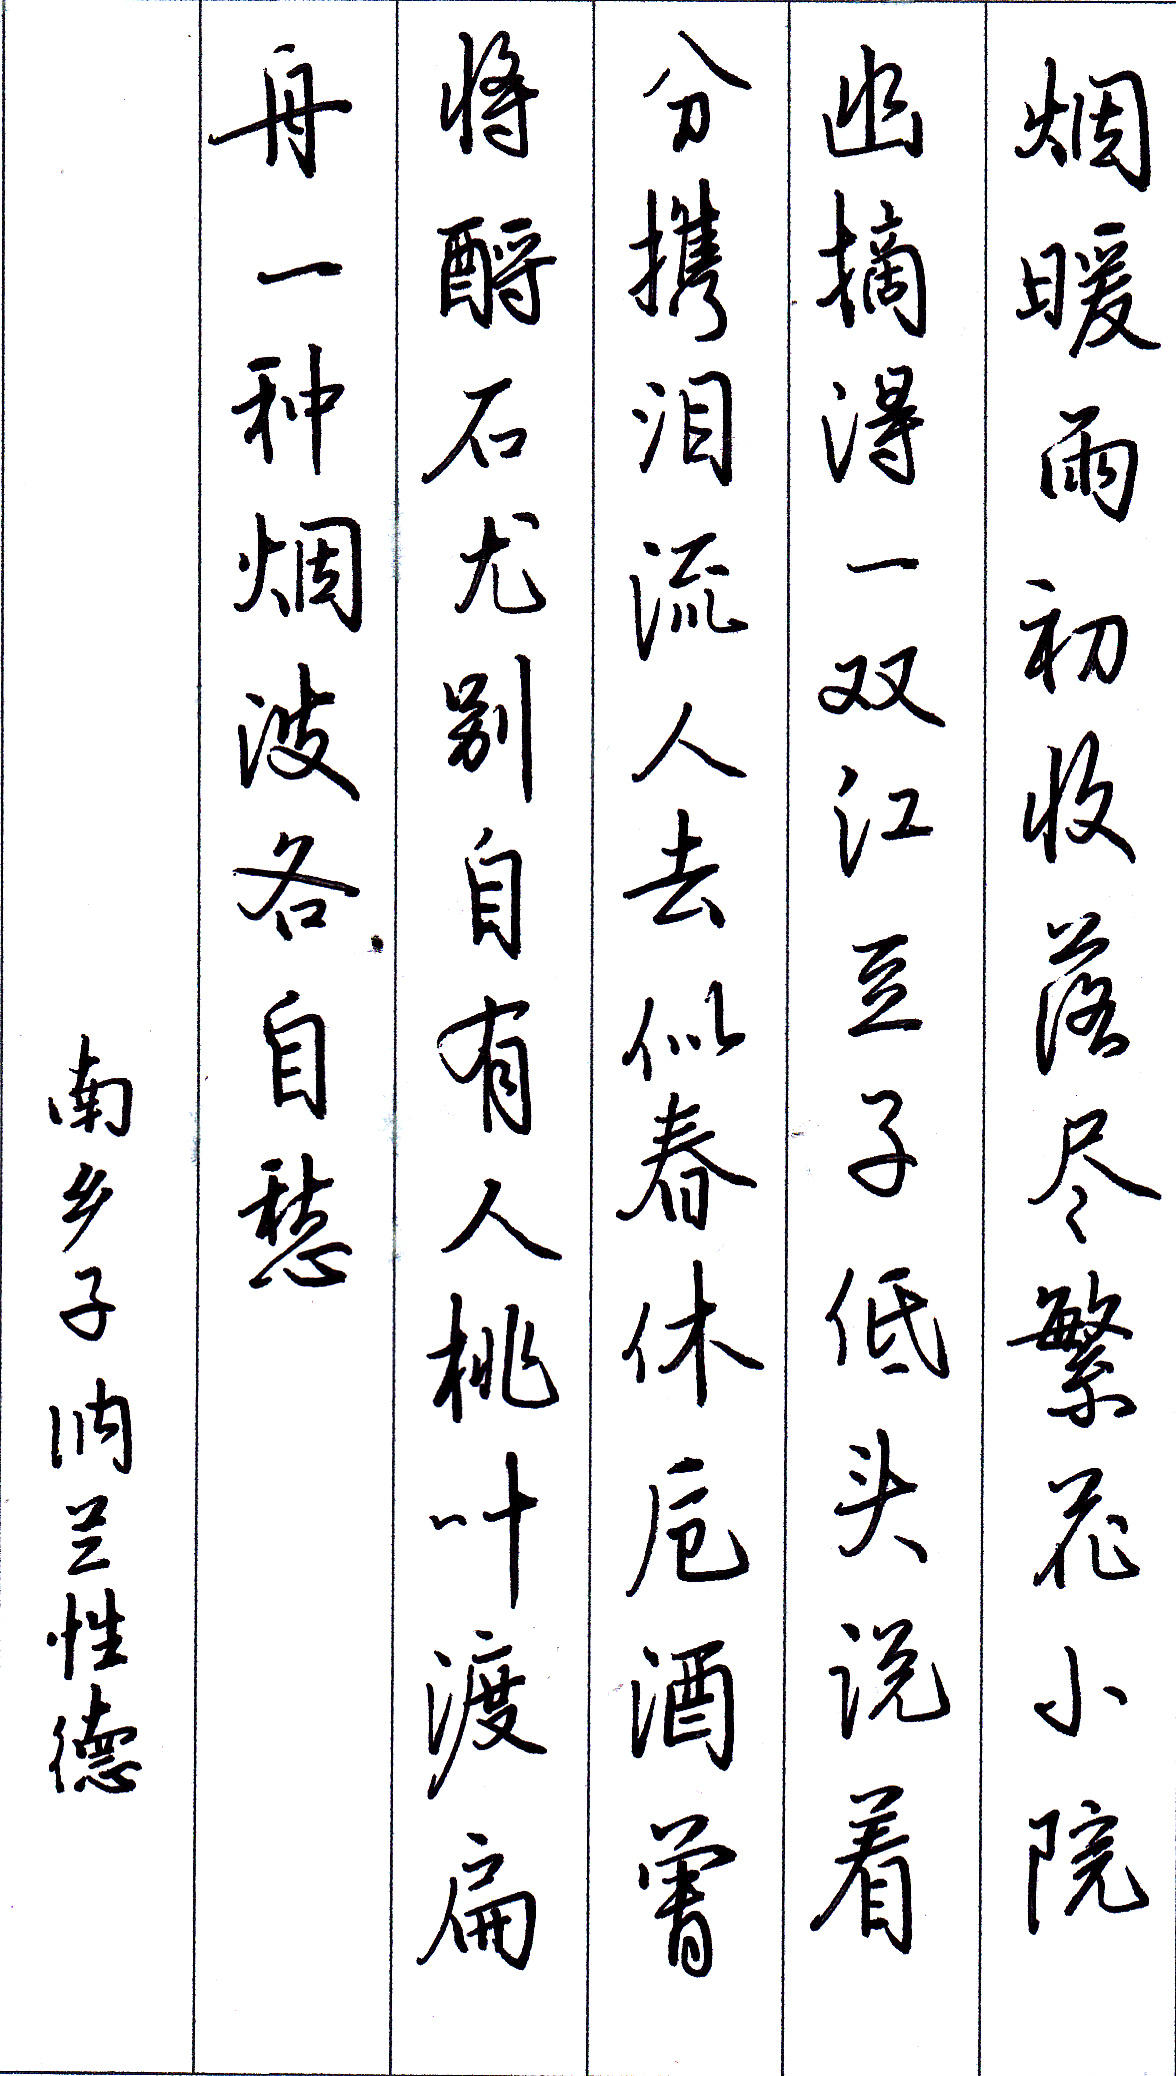 烟暖雨初收落尽繁花小院
幽摘得一双红豆子低头说着
分携泪流人去似春休卮酒曾
将酹石尤别自有人桃叶渡扁
舟一种烟波各自愁
南乡子纳兰性德